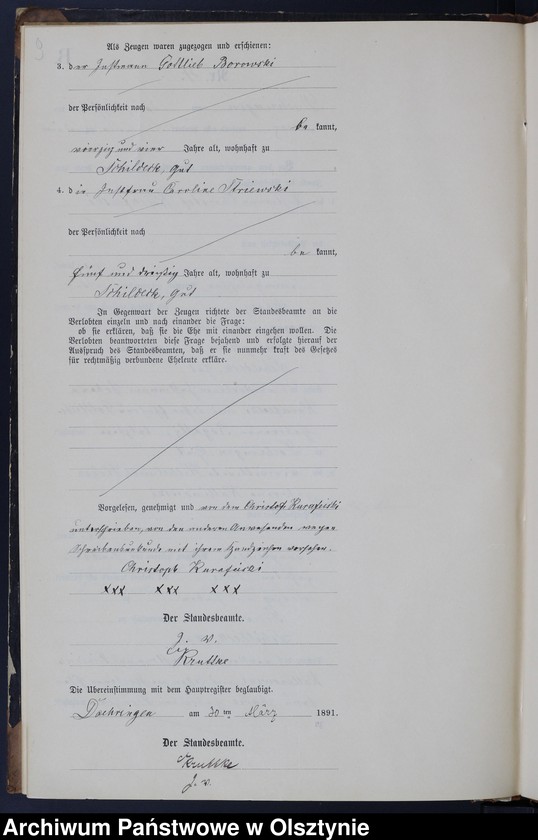 Als Zeugen waren zugezogen und erschienen:
3. der Instmann Gottlieb Borowski
der Persönlichkeit nach
be kannt,
vierzig und vier Jahre alt, wohnhaft zu
Schildeck, Gut
4. die Instfrau Caroline Striewski
der Persönlichkeit nach
be kannt,
fünf und dreißig Jahre alt, wohnhaft zu
Schildeck, Gut
In Gegenwart der Zeugen richtete der Standesbeamte an die
Verlobten einzeln und nach einander die Frage:
ob sie erklären, daß sie die Ehe mit einander eingehen wollen. Die
Verlobten beantworteten diese Frage bejahend und erfolgte hierauf der
Ausspruch des Standesbeamten, daß er sie nunmehr kraft des Gesetzes
für rechtmäßig verbundene Eheleute erkläre.
Vorgelesen, genehmigt und von dem Christoph
unterschrieben, von den anderen Anwesenden wegen
Schreibensunkunde mit ihrem Handzeichen versehen.
Christoph
xxx xxx xxx
Der Standesbeamte.
J. V.
Die Übereinstimmung mit dem Hauptregister beglaubigt.
Doehringen am 30ten März 1891.
Der Standesbeamte.
J. V.
Archiwum Państwowe w Olsztynie